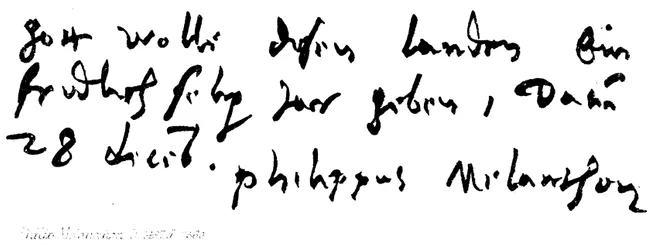 gott wolle disen landen ein
fridlich selig Jar geben, Datu
28 decēb.
philippus Melanthon